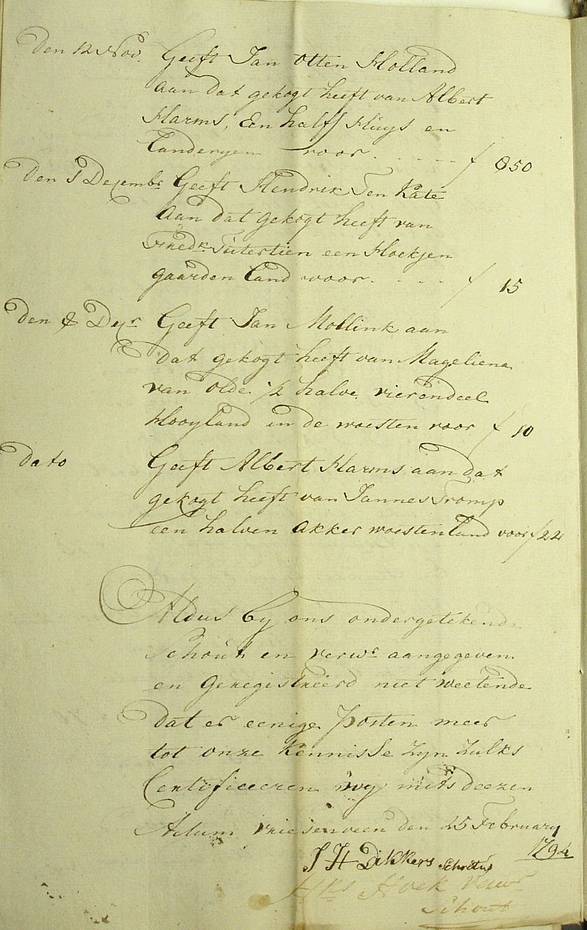 Den 12 Nov. Geeft Jan Otten Holland
aan dat gekogt heeft van Albert
Harms, Een half Huys en
Landeryen voor. . . . . . f 850
Den 1 Dezembr Geeft Hendrik Ten Kate
aan dat gekogt heeft van
een Hoekjen
gaarden Land voor. . . . . f 15
Den 8 Decr Geeft Jan Mollink aan
dat gekogt heeft van Mageliena
van Olde 1/2 halve vierendeel
Hooyland in de woesten voor f 10
Dato Geeft Albert Harms aan dat
gekogt heeft van Jannes Tromp
een halven Akker woestenland voor f 22
Aldus by ons ondergetekende
Schout en verwr aangegeven
en Geregistreerd niet weetende
dat er eenige Posten meer
tot onze Kennisse zyn zulks
Certificeeren wy mits deezen
Actum vriesenveen den 25 February
1794
J H Dikkers Schout
Hoek Verwr
Schout